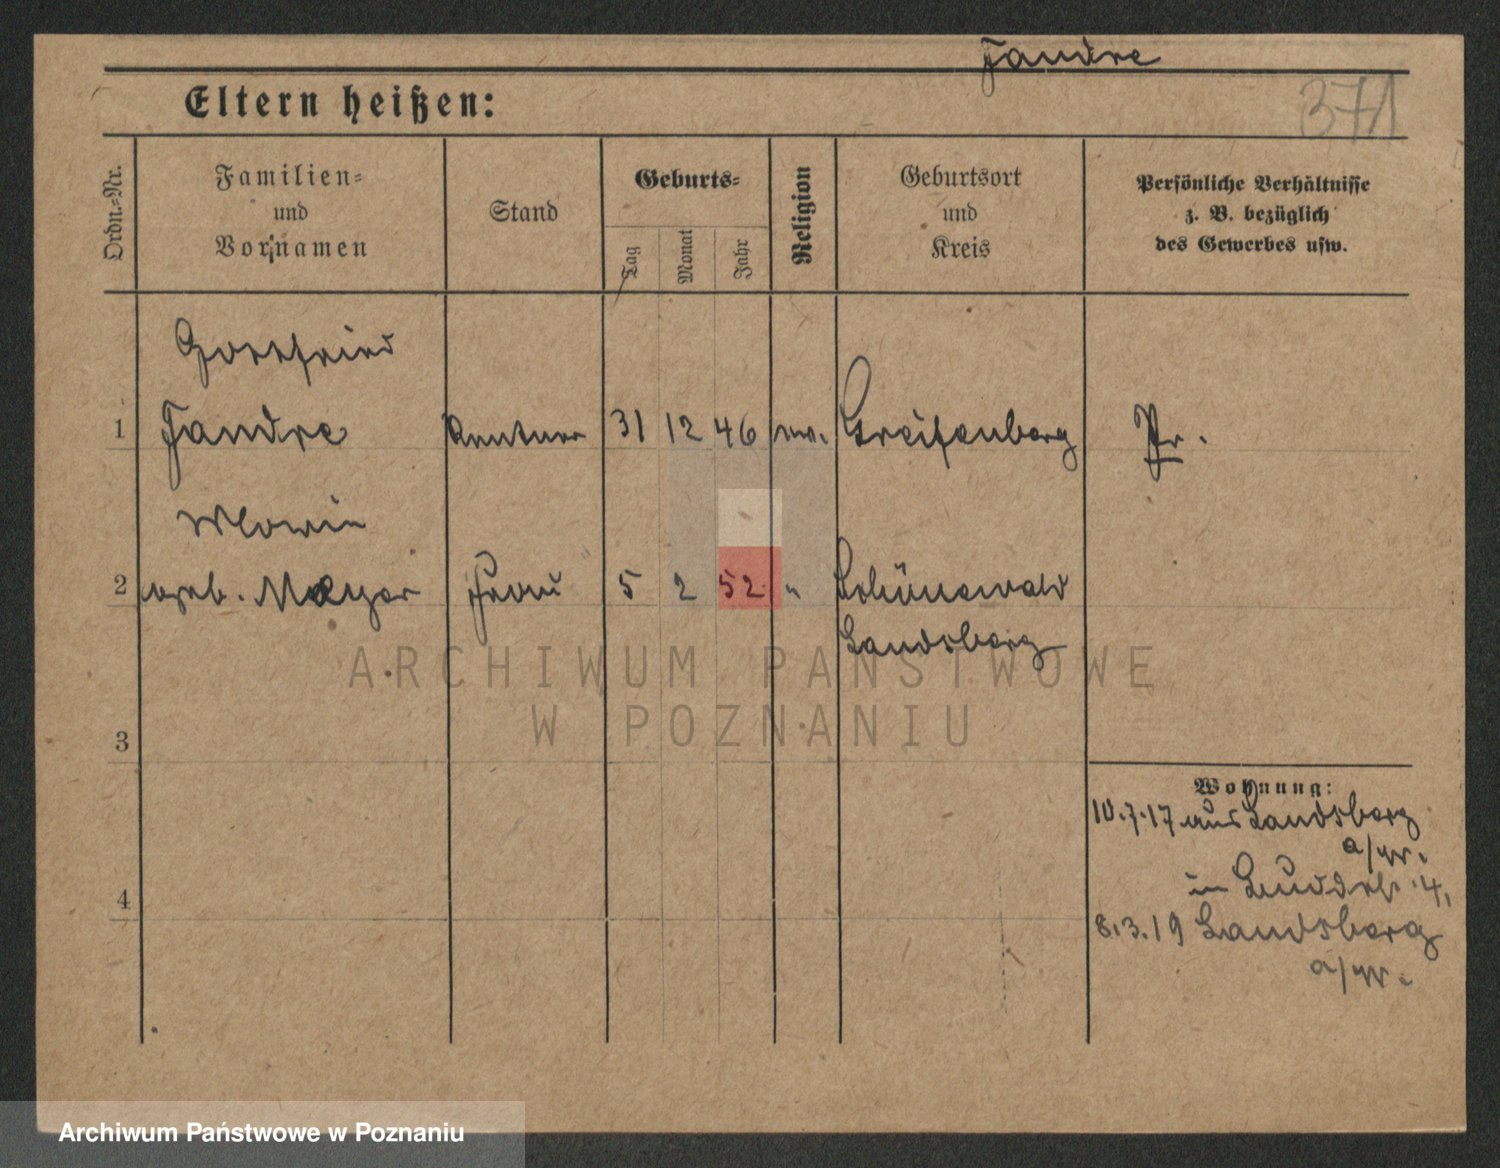 Fandre
371
Eltern heißen:
Ordn.-Nr.
Familien-
und
Vornamen
Stand
Geburts-
Tag
Monat
Jahr
Religion
Geburtsort
und
Kreis
Persönliche Verhältnisse
z. B. bezüglich
des Gewerbes usw.
Gottfried
1 Fandre Rentner 31 12 46 ev. Greifenberg Pr.
2 geb. Meyer Frau 5 2 52 " Schönewald
Landsberg
ARCHIWUM PAŃSTWOWE
W POZNANIU
3
Wohnung:
10.7.17 aus Landsberg
a/W.
in 4,
4
8.3.19 Landsberg
a/W.
Archiwum Państwowe w Poznaniu